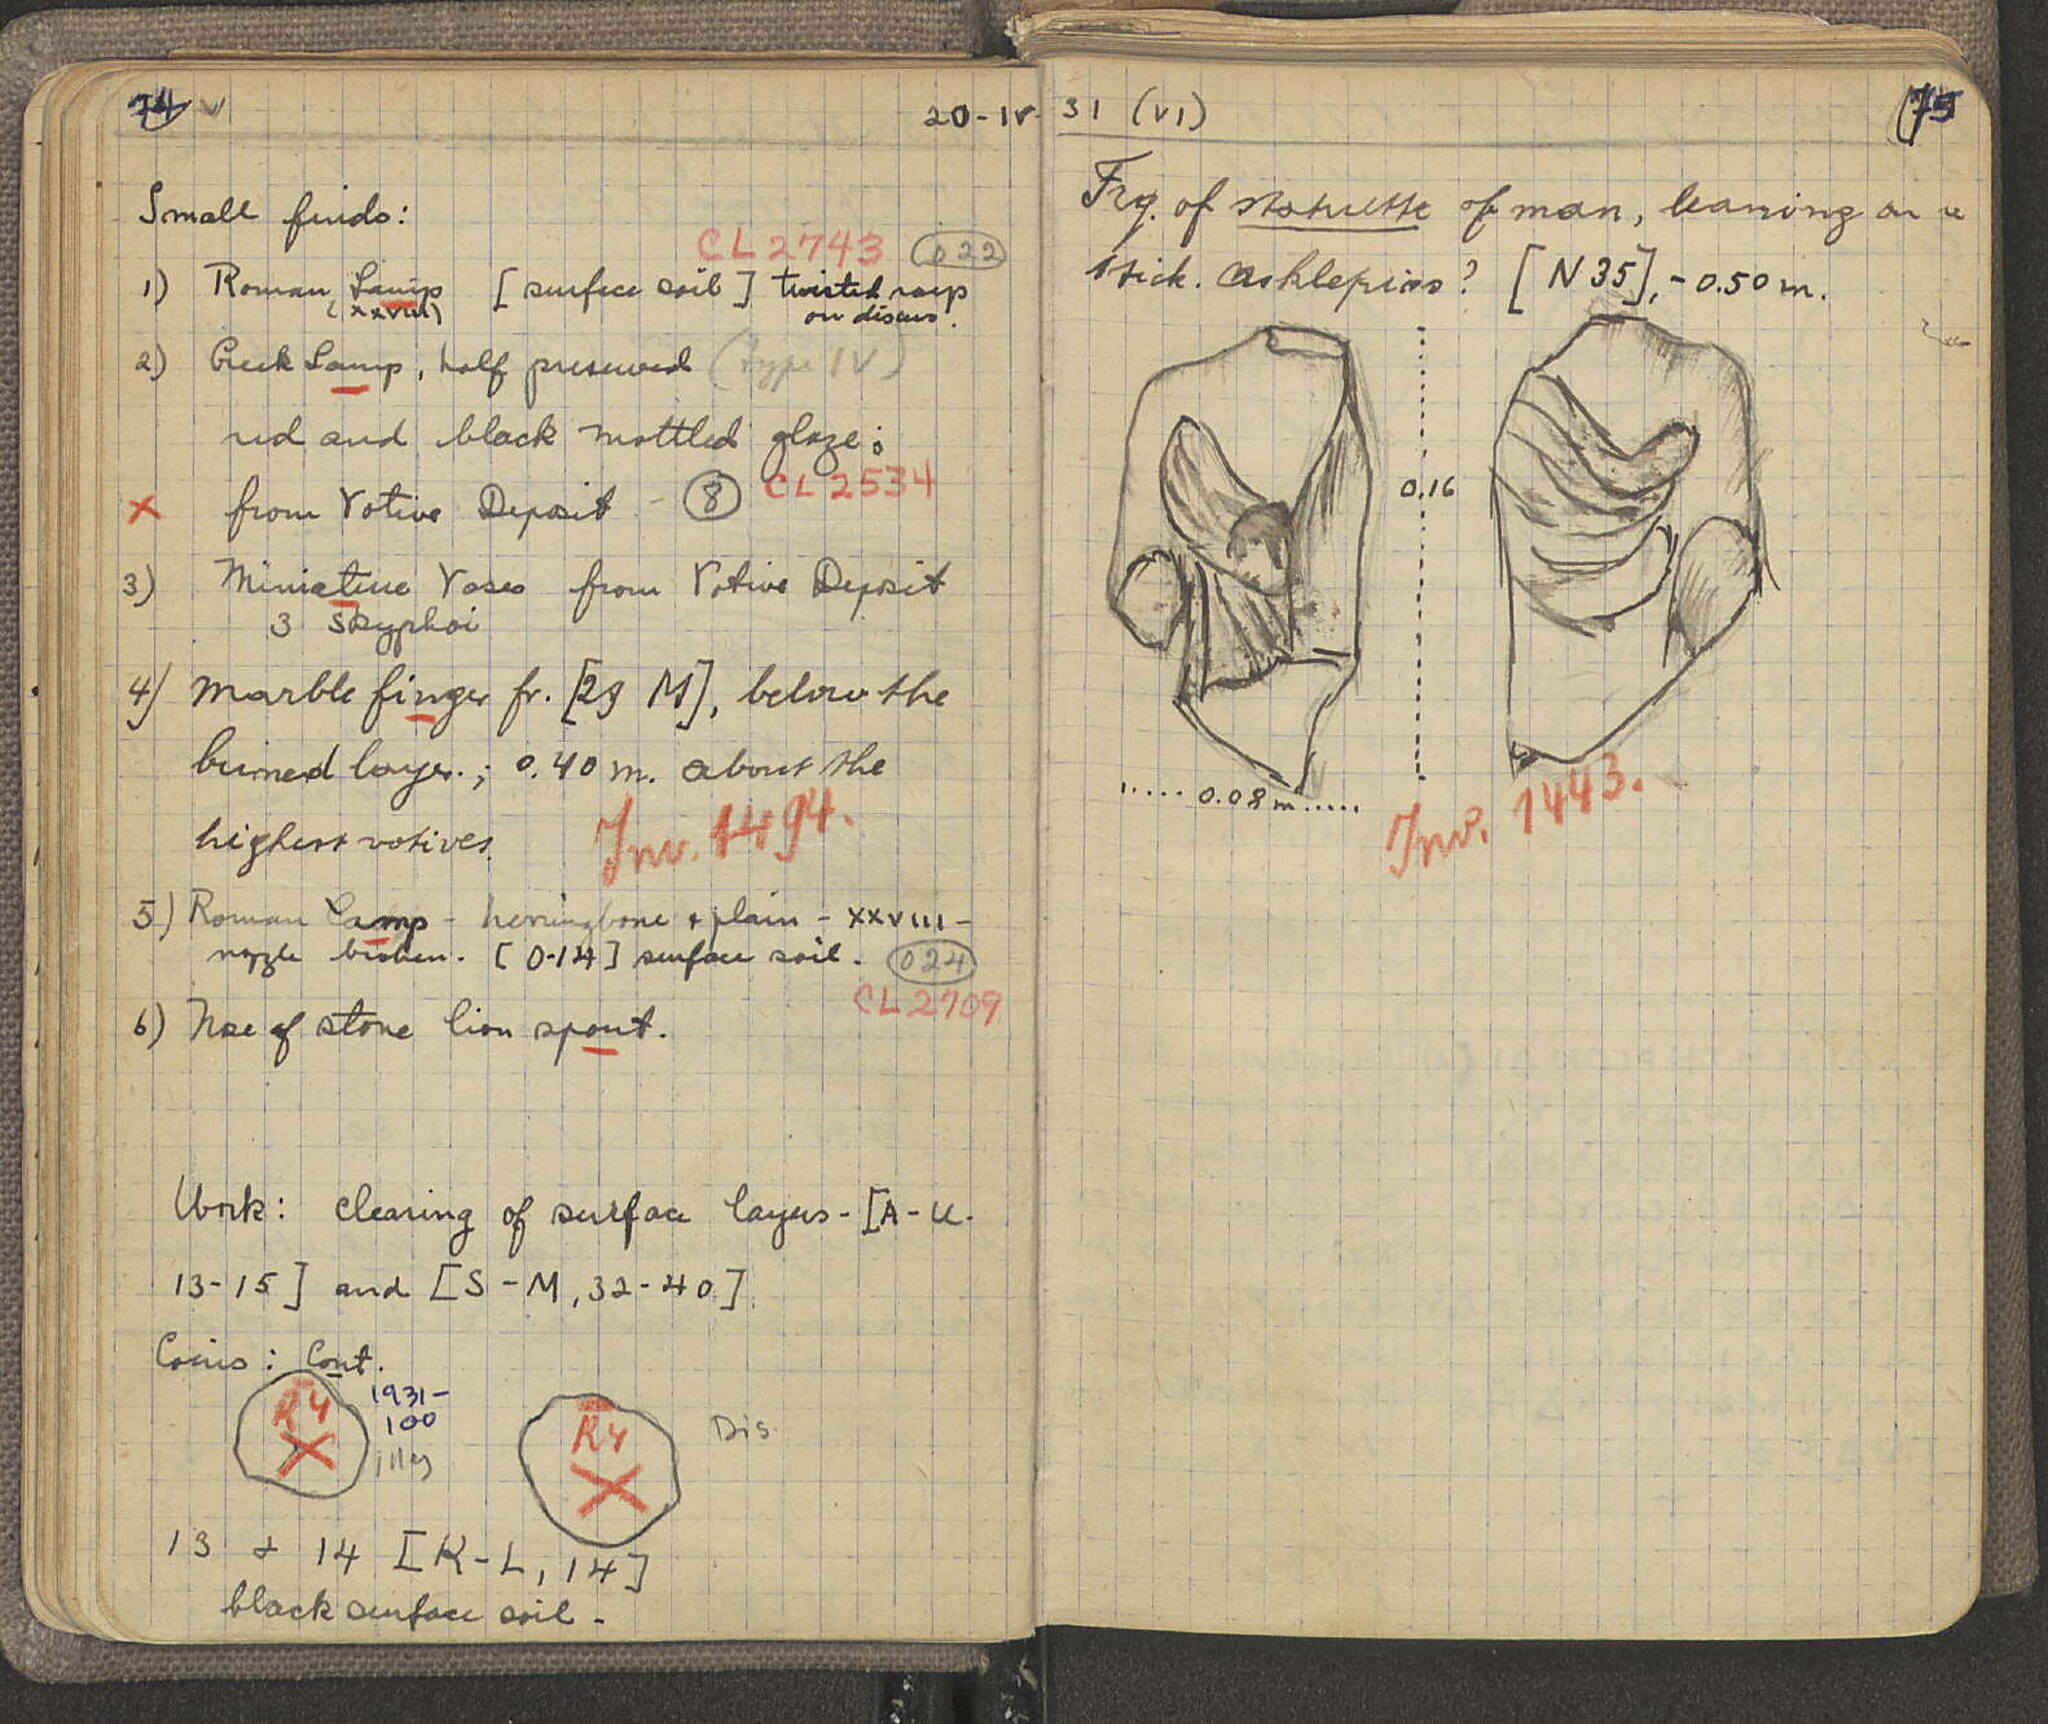 74
20-IV-
Small finds:
CL2743 022
1) Roman Lamp [surface soil] twisted rasp
(xxviii) on discus.
2) Greek Lamp, half preserved (type IV)
red and black mottled glaze;
x from Votive Deposit - 8 CL2534
3) Miniature Vases from Votive Deposit
3 Skyphoi
4) Marble finger fr. [29 M], below the
burned layer.; 0.40 m. about the
highest votives. Inv. 1494.
5) Roman Lamp - herringbone + plain - XXVIII -
nozzle broken. [O-14] surface soil. 024
CL2709
6) Nose of stone lion spout.
Work: clearing of surface layers - [A-K.
13-15] and [S-M, 32-40]
Coins: Cont.
R4 X 1931-
100
illeg
R4 X Dis
13 + 14 [K-L, 14]
black surface soil -
31 (VI) 75
Frg. of statuette of man, leaning on a
stick. Asklepios? [N 35], -0.50 m.
0.16
..... 0.08 m .....
Inv. 1443.